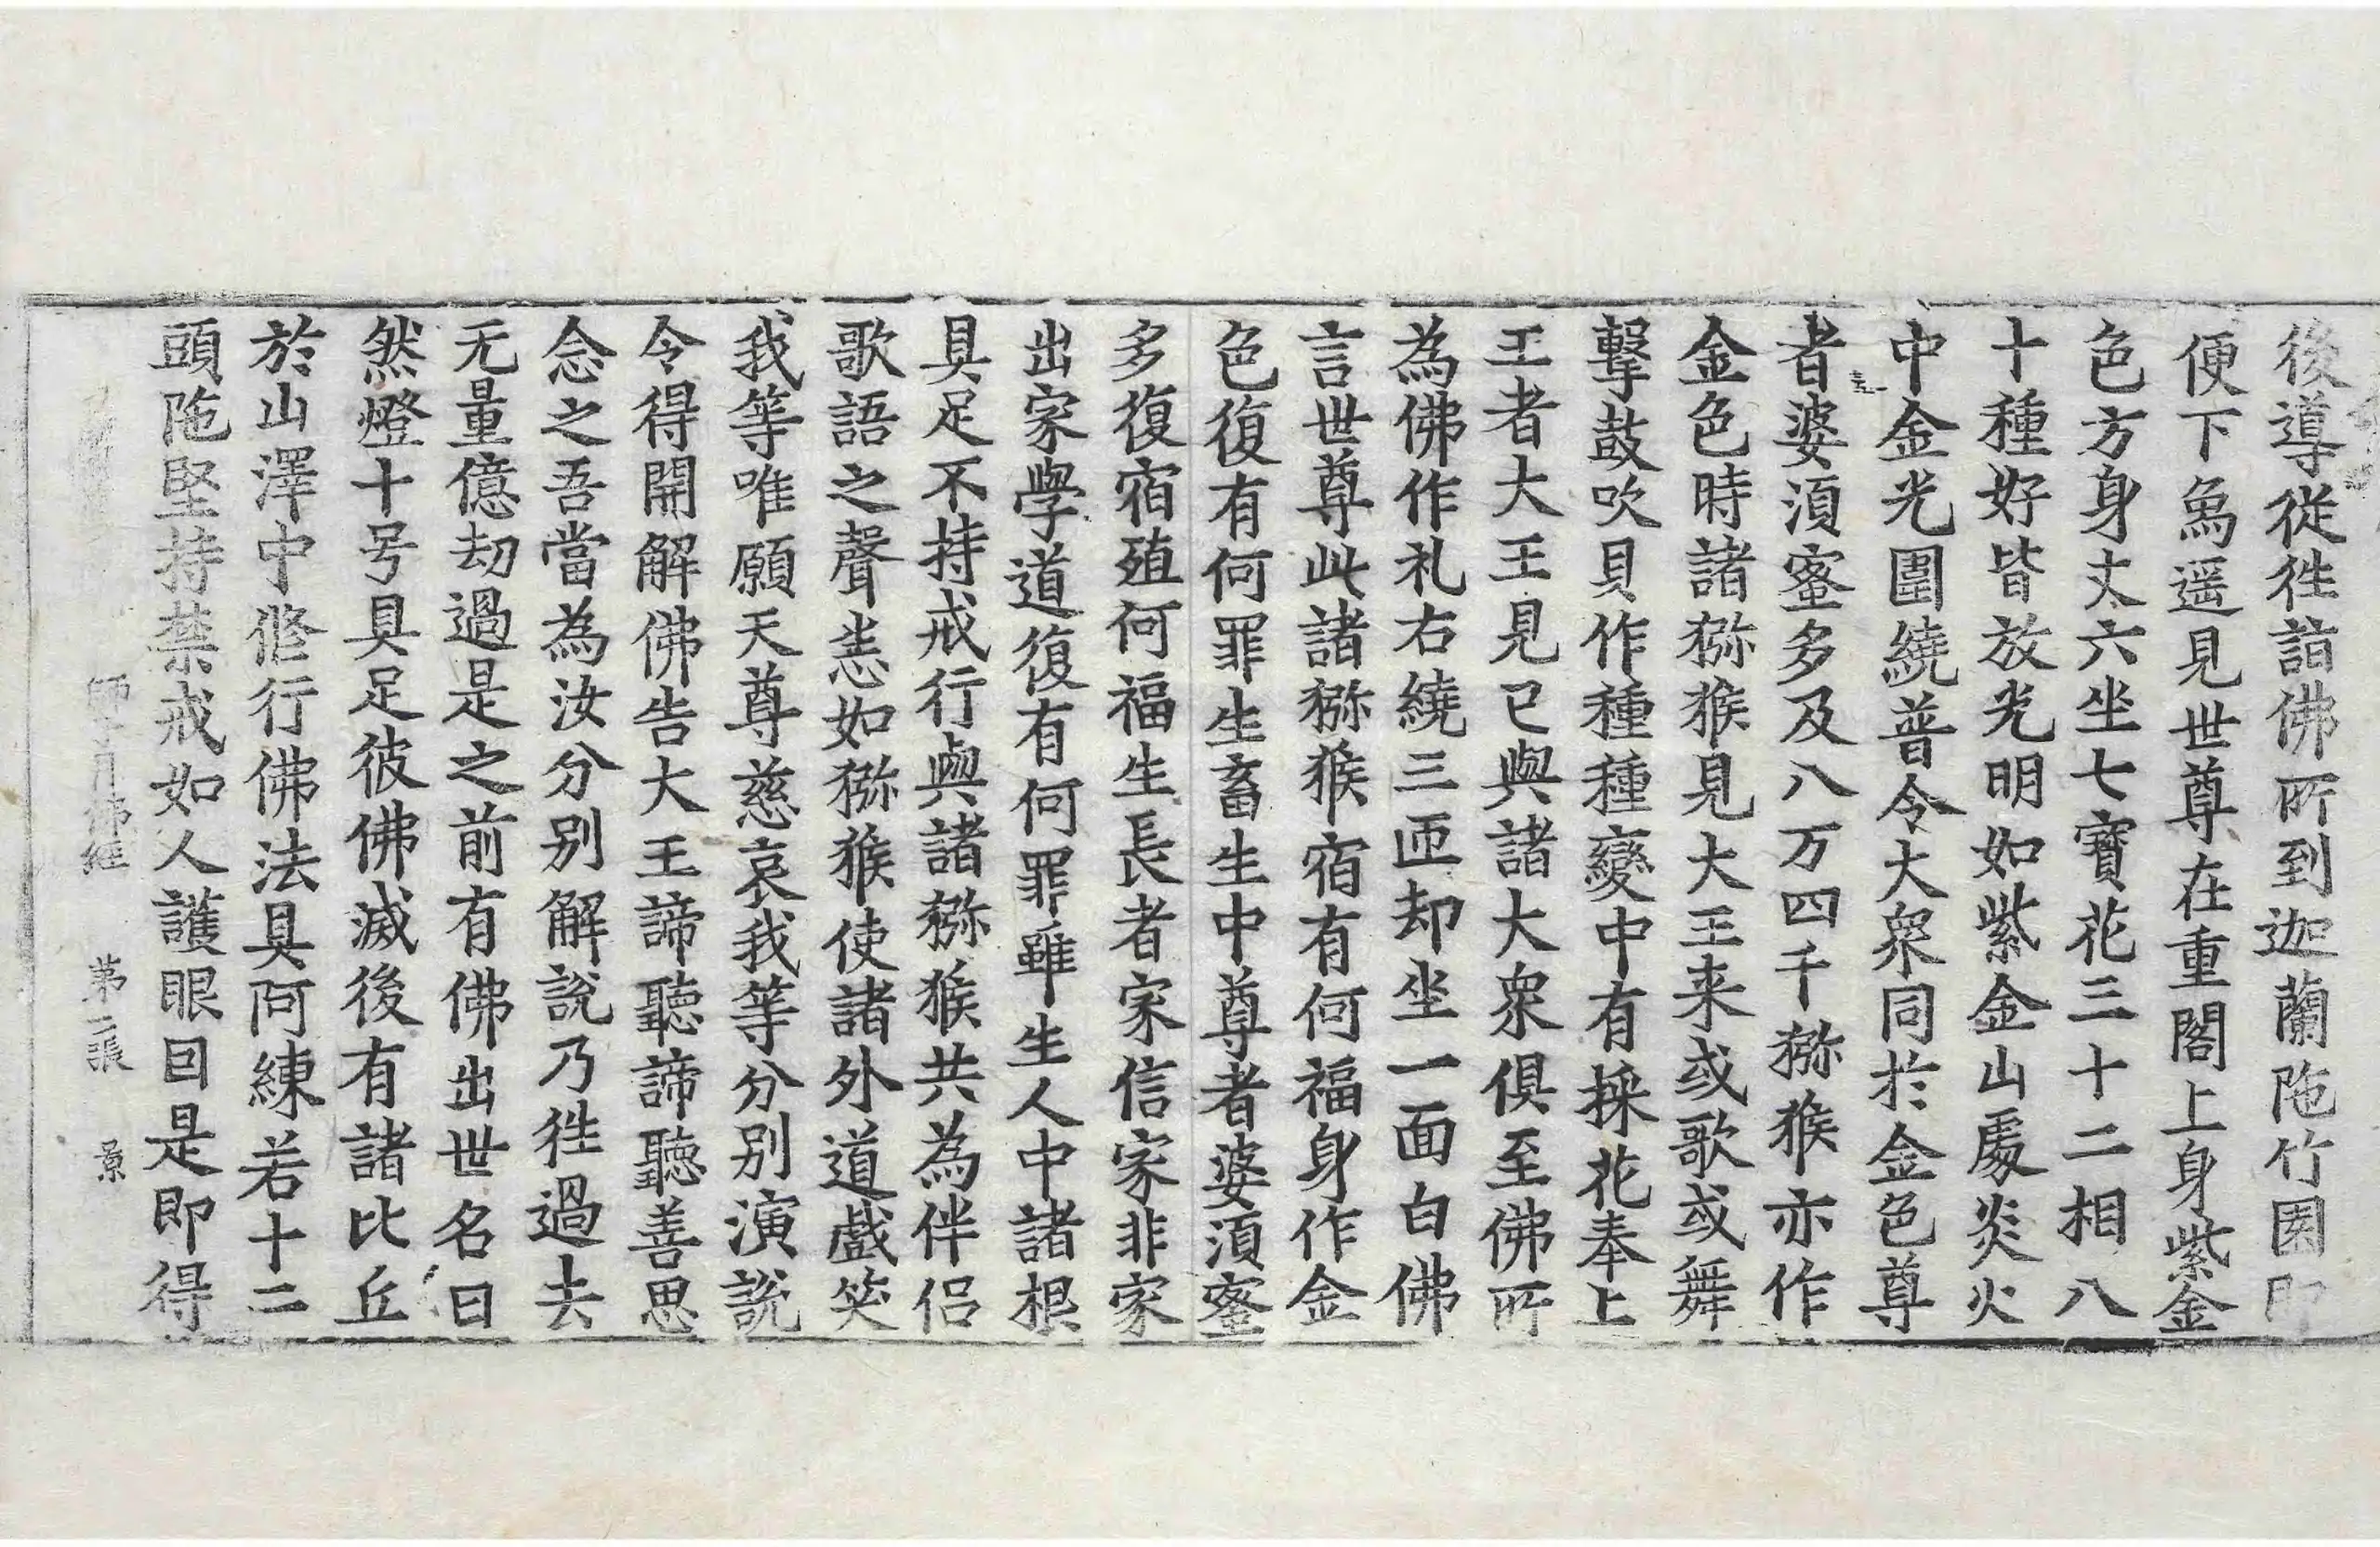 後導從徃詣佛所到迦蘭陁竹園即
便下象遥見世尊在重閣上身紫金
色方身丈六坐七寶花三十二相八
十種好皆放光明如紫金山處炎火
中金光圍繞普令大衆同於金色尊
者婆湏蜜多及八万四千獼猴亦作
金色時諸獼猴見大王来或歌或舞
擊鼓吹貝作種種變中有採花奉上
王者大王見已與諸大衆俱至佛所
為佛作礼右繞三匝却坐一面白佛
言世尊此諸獼猴宿有何福身作金
色復有何罪生畜生中尊者婆湏蜜
多復宿殖何福生長者家信家非家
出家學道復有何罪雖生人中諸根
具足不持戒行與諸獼猴共為伴侣
歌語之聲恙如獼猴使諸外道戲笑
我等唯願天尊慈哀我等分别演說
令得開解佛告大王諦聽諦聽善思
念之吾當為汝分别解說乃徃過去
无量億劫過是之前有佛出世名曰
然燈十号具足彼佛滅後有諸比丘
於山澤中修行佛法具阿練若十二
頭陁堅持禁戒如人護眼因是即得
師子月佛經 第二張 景